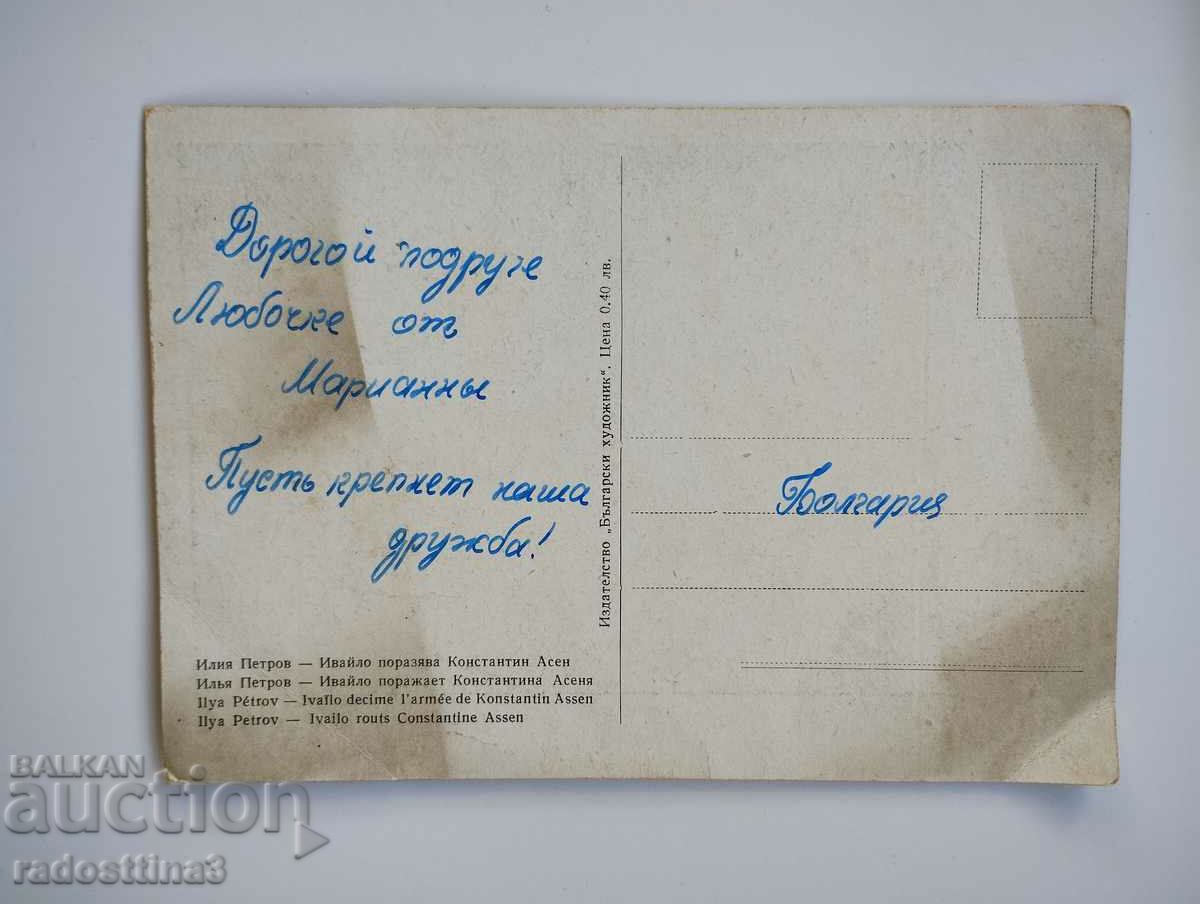 Дорогой подруге
Любочке от
Марианны
Пусть крепнет наша
дружба!
Илия Петров — Ивайло поразява Константин Асен
Илья Петров — Ивайло поражает Константина Асеня
Ilya Pétrov — Ivaïlo decime l'armée de Konstantin Assen
Ilya Petrov — Ivailo routs Constantine Assen
Издателство „Български художник“. Цена 0.40 лв.
Болгария
BALKAN
auction
radosttina3